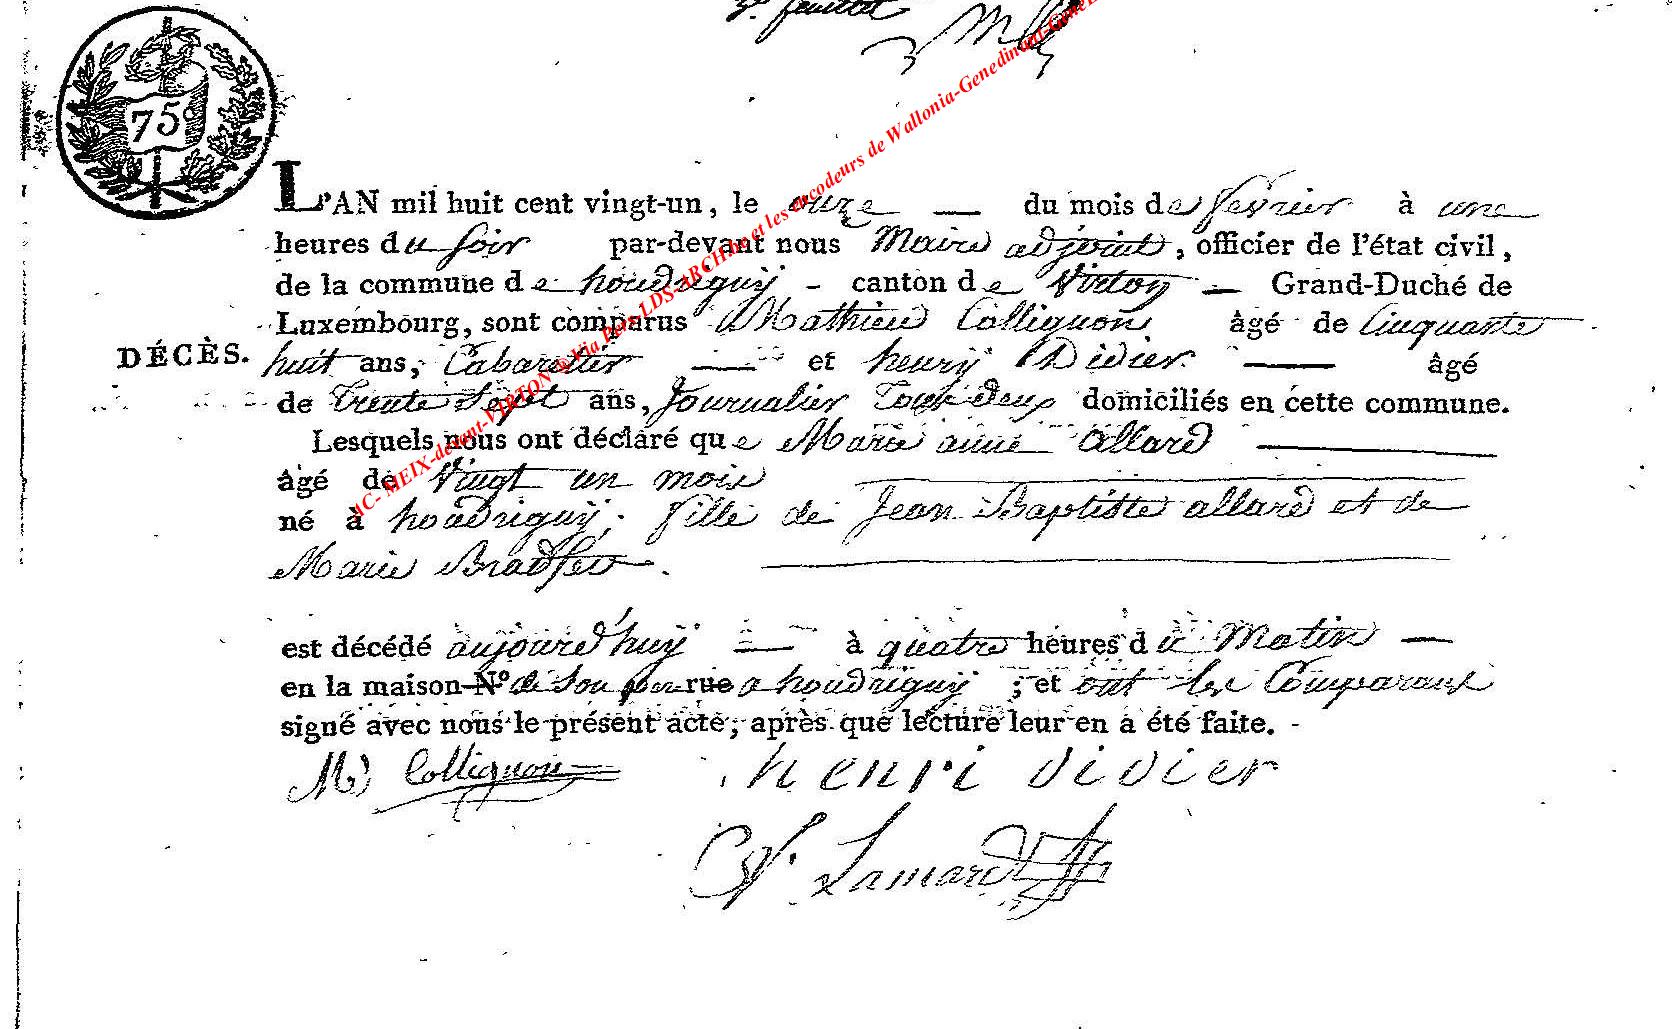 2e. feuillet
75c
L'AN mil huit cent vingt-un, le onze — du mois de février à une
heures du soir par-devant nous Maire adjoint, officier de l'état civil,
de la commune de houdriguy - canton de Virton — Grand-Duché de
Luxembourg, sont comparus Mathieu Collignon âgé de Cinquante
DÉCÈS.
huit ans, Cabaretier — et henry Didier — âgé
de Trente Sept ans, Journalier Tous deux domiciliés en cette commune.
Lesquels nous ont déclaré que Marie anne Allard —
âgé de Vingt un mois
né à houdriguy, fille de Jean Baptiste allard et de
Marie Bradfer.
est décédé aujourd'huy — à quatre heures du Matin —
en la maison N° de Son père rue a houdriguy ; et ont les Comparant
signé avec nous le présent acte, après que lecture leur en a été faite.
M Collignon henri didier
Lamard
AC- MEIX-devant-VIRTON @ Via Pers-LDS-ARCHbe et les encodeurs de Wallonia-Genedinant-GeneL